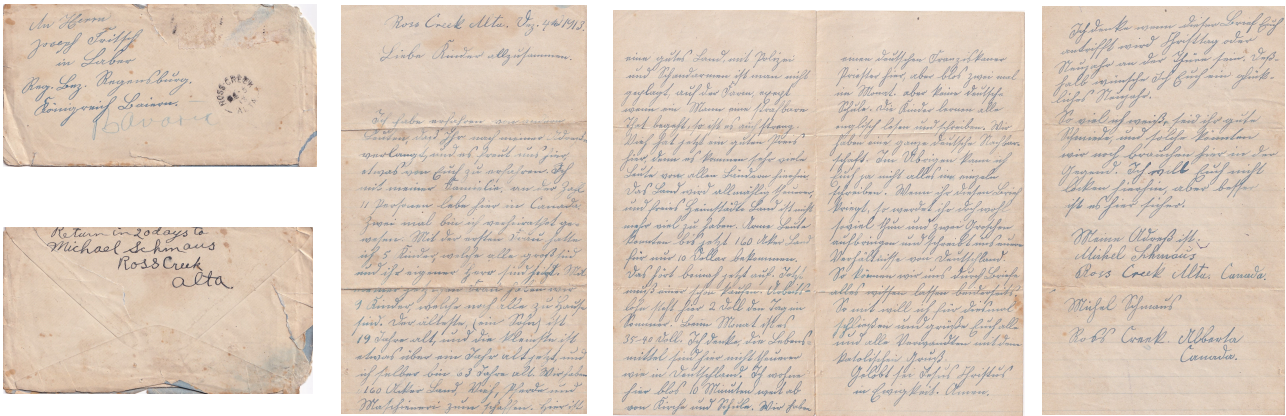 An Herrn
Joseph Fritsch
in Laber
Reg. Bez. Regensburg.
Königreich Baiern.
Bavaria
ROSS CREEK
Return in 20 days to
Michael Schmaus
Ross Creek
Alta.
Ross Creek Alta. Dez. 4 1913.
Liebe Kinder allzusammen.
Ich habe erfahren von
daß Ihr nach meiner
verlangt, und es freut uns hier
etwas von Euch zu erfahren. Ich
mit meiner Familie, an der Zahl
11 Personen, lebe hier in Canada.
Zwei mal bin ich verheiratet ge-
wesen. Mit der ersten Frau hatte
ich 5 Kinder, welche alle groß sind
und ihr eigener Herr sind. Mit
haben wir
9 Kinder, welche noch alle zu Hause
sind. Der älteste (ein Sohn) ist
19 Jahre alt, und die kleinste ist
etwas über ein Jahr alt jetzt, und
ich selber bin 63 Jahre alt. Wir haben
160 Aker Land, Vieh, Pferde und
Maschinerie zum schaffen. Hier ist
eine gutes Land, mit Polizei
und Schandarmen ist man nicht
geplagt, auf der Farm, except
wenn ein Mann eine strafbare
That begeht, so ist es auch streng.
Vieh hat jetzt ein guten Preis
hier, denn es kommen sehr viele
Leute von allen Ländern hierher.
Das Land wird allmählig theurer
und freies Heimstädte Land ist nicht
mehr viel zu haben. Arme Leute
konnten bis jetzt 160 Aker Land
für nur 10 Dollar bekommen.
Das hört beinah jetzt auf. Jetzt
muß einer schon kaufen. Arbeits-
lohn steht hier 2 Doll den Tag im
Sommer. Beim Monat ist es
35-40 Doll. Ich denke, die Lebens-
mittel sind hier nicht theurer
wie in Deutschland. Ich wohne
hier blos 10 Minuten weit ab
von Kirche und Schule. Wir haben
einen deutschen Franziskaner
Priester hier, aber blos zwei mal
im Monat, aber keine deutsche
Schule. Die Kinder lernen alle
englisch lesen und schreiben. Wir
haben eine ganze deutsche Nachbar-
schaft. Im Übrigen kann ich
Euch ja nicht alles so einzeln
schreiben. Wenn ihr diesen Brief
kriegt, so werdet ihr doch wohl
soviel thun und zwei Groschen
aufbringen und schreibt uns eure
Verhältnisse von Deutschland.
So können wir uns durch Briefe
alles wissen lassen beiderseits.
So mit will ich für diesmal
schließen und grüße Euch alle
und alle Verwandten mit dem
katolischen Gruß.
Gelobt sei Jesus Christus
in Ewigkeit. Amen.
Ich denke wenn dieser Brief Euch
antrifft wird Christtag oder
Neujahr an der Thüre sein. Deß-
halb wünsche ich Euch ein glück-
liches Neujahr.
So viel ich weiß, seid ihr gute
Schmiede, und solche könnten
wir noch brauchen hier in der
Gegend. Ich will Euch nicht
locken hierhin, aber besser
ist es hier sicher.
Meine Adreß ist
Michel Schmaus
Ross Creek Alta. Canada.
Michel Schmaus
Ross Creek. Alberta
Canada.